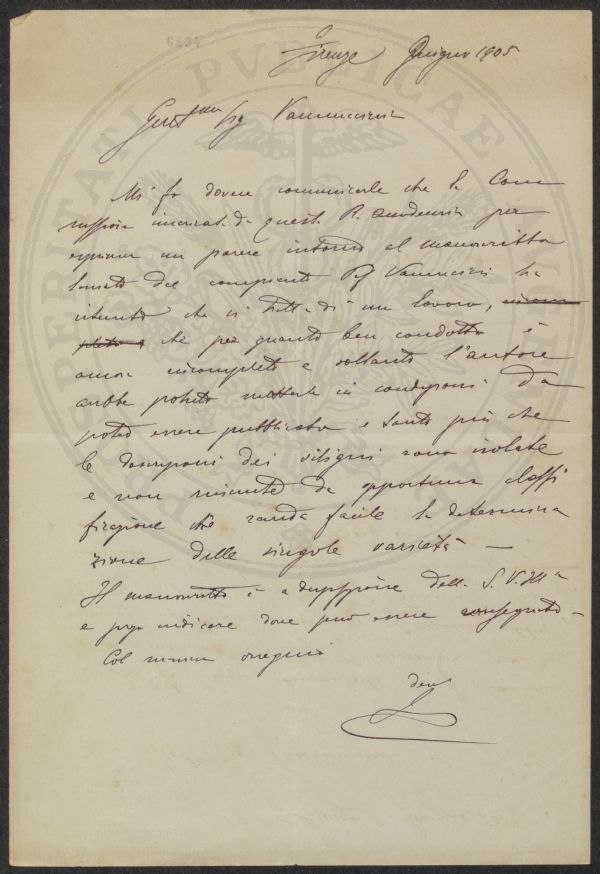 Firenze Giugno 1905
Gent.mo Sig Vannuccini
Mi fo dovere comunicarle che la Com
missione incaricata di questa R. Accademia per
esprimere un parere intorno al manoscritto
lasciato dal compianto Prof Vannuccini ha
ritenuto che si tratta di un lavoro,
che per quanto ben condotto è
ancora incompleto e soltanto l'autore
avrebbe potuto metterlo in condizioni da
poter essere pubblicato e tanto più che
le descrizioni dei vitigni sono isolate
e non riunite da opportuna classi
ficazione che renda facile la determina
zione delle singole varietà —
Il manoscritto è a disposizione della S. V. Ill.a
e prego indicare dove può essere consegnato —
Col massimo ossequio
dev